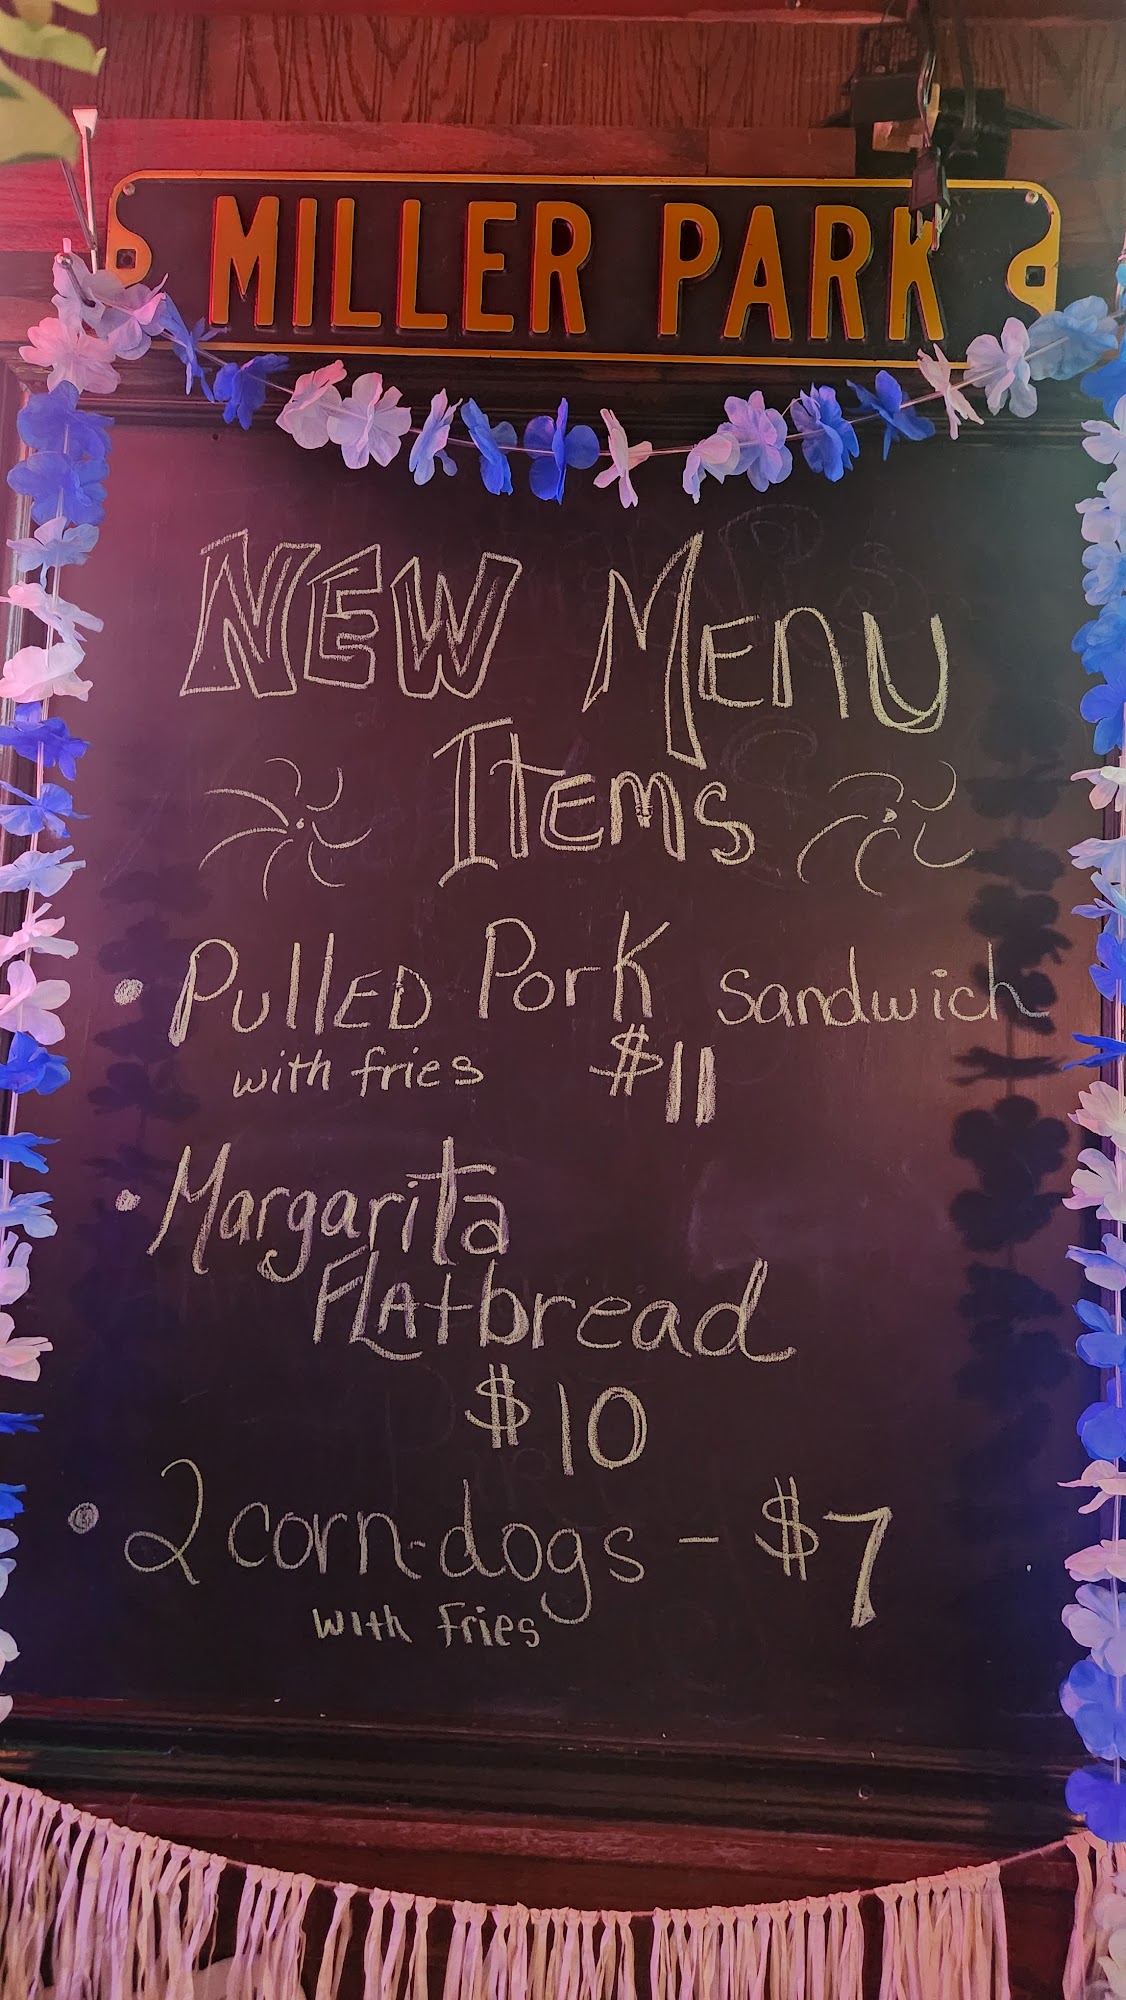 MILLER PARK
NEW MENU
ITEMS
• PullED Pork Sandwich
with fries $11
• Margarita
FLAtbread
$10
• 2 corn-dogs - $7
with fries